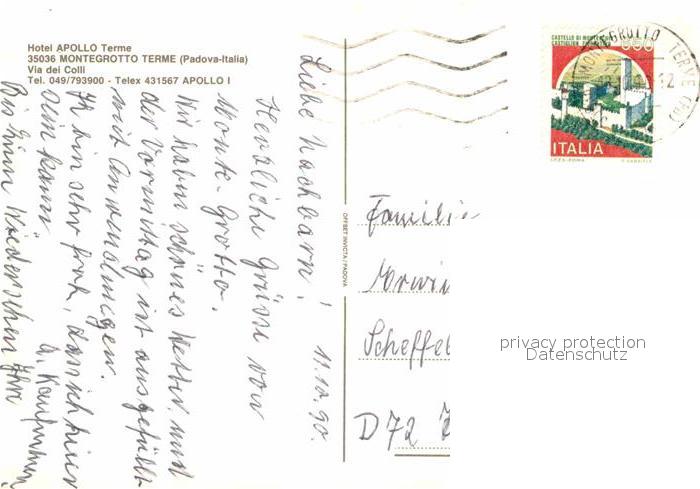 Hotel APOLLO Terme
35036 MONTEGROTTO TERME (Padova-Italia)
Via dei Colli
Tel. 049/793900 - Telex 431567 APOLLO I
11.10.90.
Liebe Nachbarn!
Herzliche Grüsse von
Monte-Grotto.
Wir haben schönes Wetter und
der Vormittag ist ausgefüllt
mit Anwendungen.
Ich bin sehr froh, dass ich hier
sein kann.
Bis zum Wiedersehen Ihre
OFFSET INVICTA / PADOVA
CASTELLO DI
650
ITALIA
I.P.Z.S.-ROMA
MONTEGROTTO TERME (PD)
12
Familie
Erwi
Scheffel
D 72
privacy protection
Datenschutz